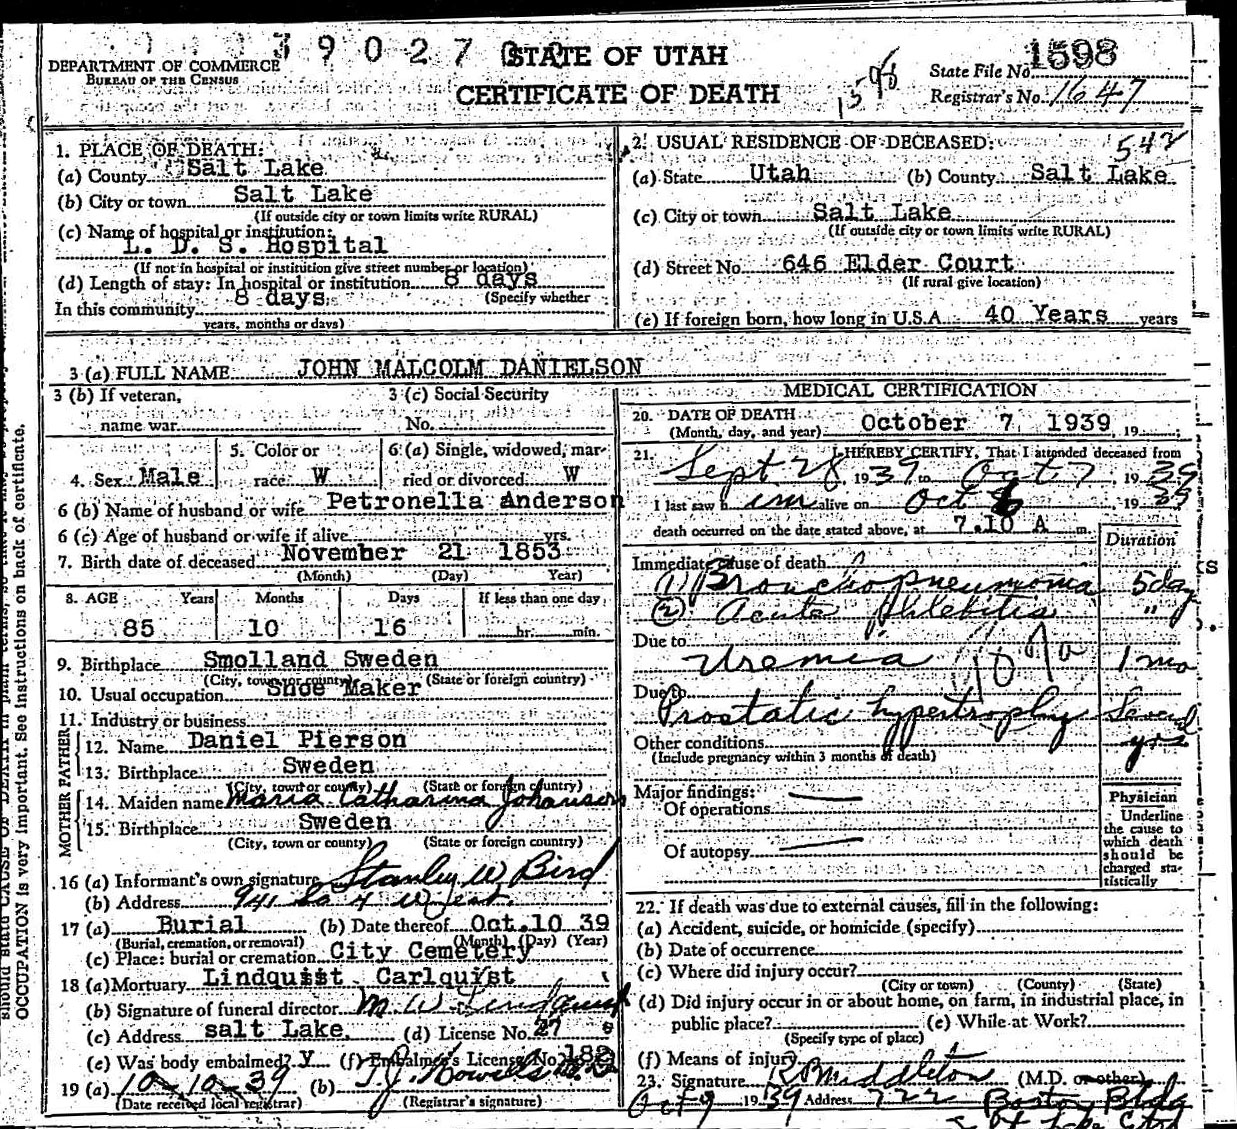 39027
STATE OF UTAH
CERTIFICATE OF DEATH
DEPARTMENT OF COMMERCE
BUREAU OF THE CENSUS
1596
State File No. 1598
Registrar's No. 1647
1. PLACE OF DEATH:
(a) County Salt Lake
(b) City or town Salt Lake
(If outside city or town limits write RURAL)
(c) Name of hospital or institution:
L. D. S. Hospital
(If not in hospital or institution give street number or location)
(d) Length of stay: In hospital or institution 8 days
(Specify whether
In this community 8 days
years, months or days)
2. USUAL RESIDENCE OF DECEASED: 542
(a) State Utah (b) County Salt Lake
(c) City or town Salt Lake
(If outside city or town limits write RURAL)
(d) Street No. 646 Elder Court
(If rural give location)
(e) If foreign born, how long in U.S.A. 40 Years years
3 (a) FULL NAME JOHN MALCOLM DANIELSON
3 (b) If veteran, name war
3 (c) Social Security No.
4. Sex Male
5. Color or race W
6 (a) Single, widowed, married or divorced W
6 (b) Name of husband or wife Petronella Anderson
6 (c) Age of husband or wife if alive yrs.
7. Birth date of deceased November 21 1853
(Month) (Day) Year)
8. AGE Years Months Days If less than one day
85 10 16 hr. min.
9. Birthplace Smolland Sweden
(City, town or county) (State or foreign country)
10. Usual occupation Shoe Maker
11. Industry or business
FATHER
12. Name Daniel Pierson
13. Birthplace Sweden
(City, town or county) (State or foreign country)
MOTHER
14. Maiden name Maria Catharina Johanson
15. Birthplace Sweden
(City, town or county) (State or foreign country)
16 (a) Informant's own signature Stanley W Bird
(b) Address 941 So 4 West.
17 (a) Burial (b) Date thereof Oct. 10 39
(Burial, cremation, or removal) (Month) (Day) (Year)
(c) Place: burial or cremation City Cemetery
18 (a) Mortuary Lindquist Carlquist
(b) Signature of funeral director M. W. Lindquist
(c) Address salt Lake. (d) License No. 27
(e) Was body embalmed? y (f) Embalmer's License No. 182
19 (a) 10-10-39 (b) T. J. Howells M.D.
(Date received local registrar) (Registrar's signature)
MEDICAL CERTIFICATION
20. DATE OF DEATH
(Month, day, and year) October 7 1939, 19
21. I HEREBY CERTIFY, That I attended deceased from
Sept 28, 1939 to Oct 7, 1939
I last saw him alive on Oct 6 1939
death occurred on the date stated above, at 7.10 A m.
Duration
Immediate cause of death
(1) Bronchopneumonia 5 day
(2) Acute Phlebitis "
Due to
Uremia 1 mo
Due to
Prostatic hypertrophy Several yrs
Other conditions
(Include pregnancy within 3 months of death)
Major findings:
Of operations
Of autopsy
Physician
Underline
the cause to
which death
should be
charged sta-
tistically
22. If death was due to external causes, fill in the following:
(a) Accident, suicide, or homicide (specify)
(b) Date of occurrence
(c) Where did injury occur?
(City or town) (County) (State)
(d) Did injury occur in or about home, on farm, in industrial place, in
public place? (e) While at Work?
(Specify type of place)
(f) Means of injury
23. Signature R B Middleton (M.D. or other)
Oct 9 1939 Address 722 Boston Bldg
OCCUPATION is very important. See instructions on back of certificate.